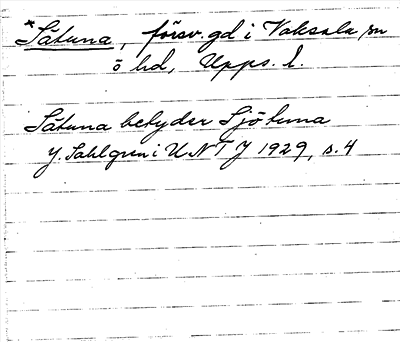 *Sätuna, försv. gd i Vaksala sn
ö hd, Upps. l.
Sätuna betyder Sjötuna
J. Sahlgren i UNT J 1929, s. 4